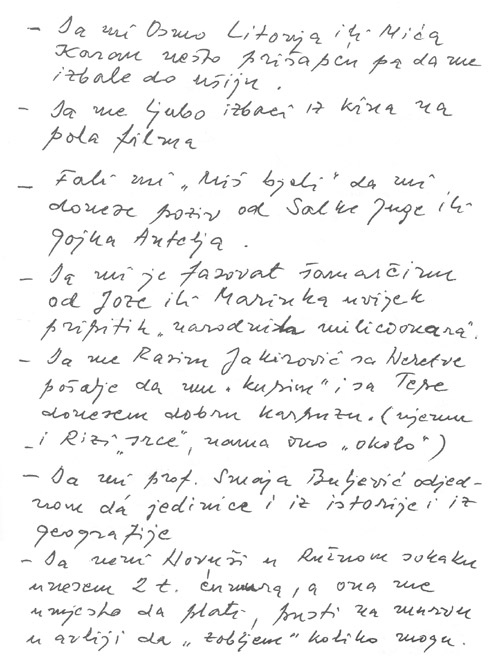 - Da mi Osmo Litovija ili Mića
Koram nešto prišapću pa da me
izbale do ušiju.
- Da me Ljubo izbaci iz kina na
pola filma
- Fali mi „Miš bjeli“ da mi
donese poziv od Salke Juge ili
Gojka Antelja.
- Da mi je fasovat šamarčinu
od Joze ili Marinka uvijek
pripitih „narodnih milicionara“.
- Da me Rasim Jakirović sa Neretve
pošalje da mu „kupim“ i sa Tepe
donesem dobru karpuzu. (njemu
i Rizi „srce“, nama ono „okolo“)
- Da mi prof. Smaja Buljević odjed-
nom dá jedinice i iz istorije i iz
geografije
- Da neni Hovuši u Ružnom sokaku
unesem 2 t. ćumura, a ona me
umjesto da plati, pusti na murvu
u avliji da „zobljem“ koliko mogu.